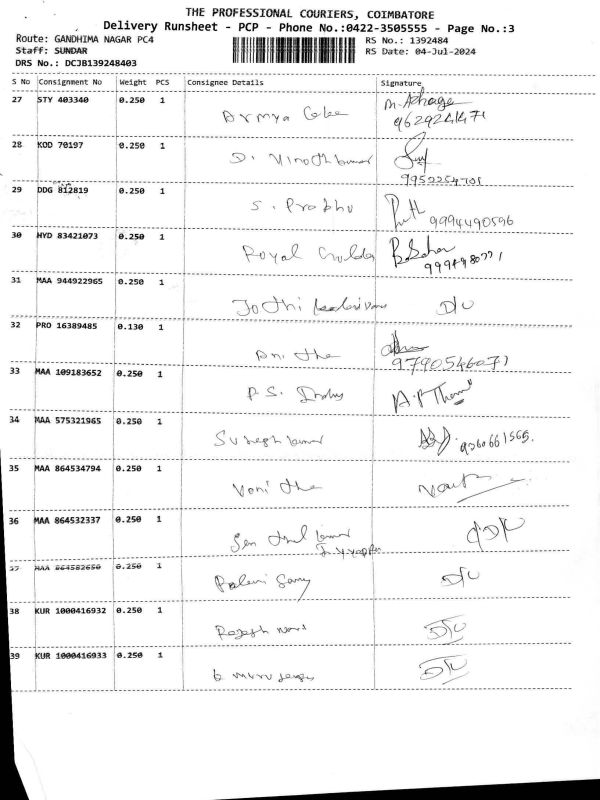 THE PROFESSIONAL COURIERS, COIMBATORE
Delivery Runsheet - PCP - Phone No.:0422-3505555 - Page No.:3
Route: GANDHIMA NAGAR PC4 RS No.: 1392484
Staff: SUNDAR RS Date: 04-Jul-2024
DRS No.: DCJB139248403
S No Consignment No Weight PCS Consignee Details Signature
27 STY 403340 0.250 1
28 KOD 70197 0.250 1 D. Vinothkumar
29 DDG 812819 0.250 1 S. Prabhu 9994490596
30 HYD 83421073 0.250 1 Royal
31 MAA 944922965 0.250 1 Jothi
32 PRO 16389485 0.130 1 Anitha 9790546071
33 MAA 109183652 0.250 1 P.S.
34 MAA 575321965 0.250 1 Sureshkumar 9360661565.
35 MAA 864534794 0.250 1 Vanitha
36 MAA 864532337 0.250 1 Senthil kumar
37 MAA 864582650 0.250 1 Palani Samy
38 KUR 1000416932 0.250 1 Rajesh
39 KUR 1000416933 0.250 1